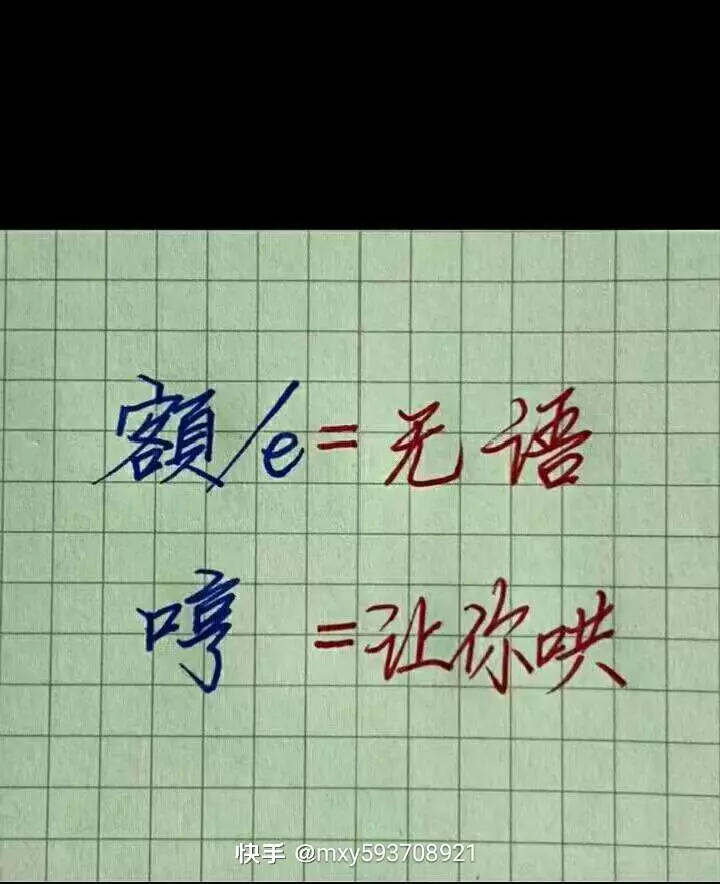 額/e=无语
哼=让你哄
快手 @mxy593708921